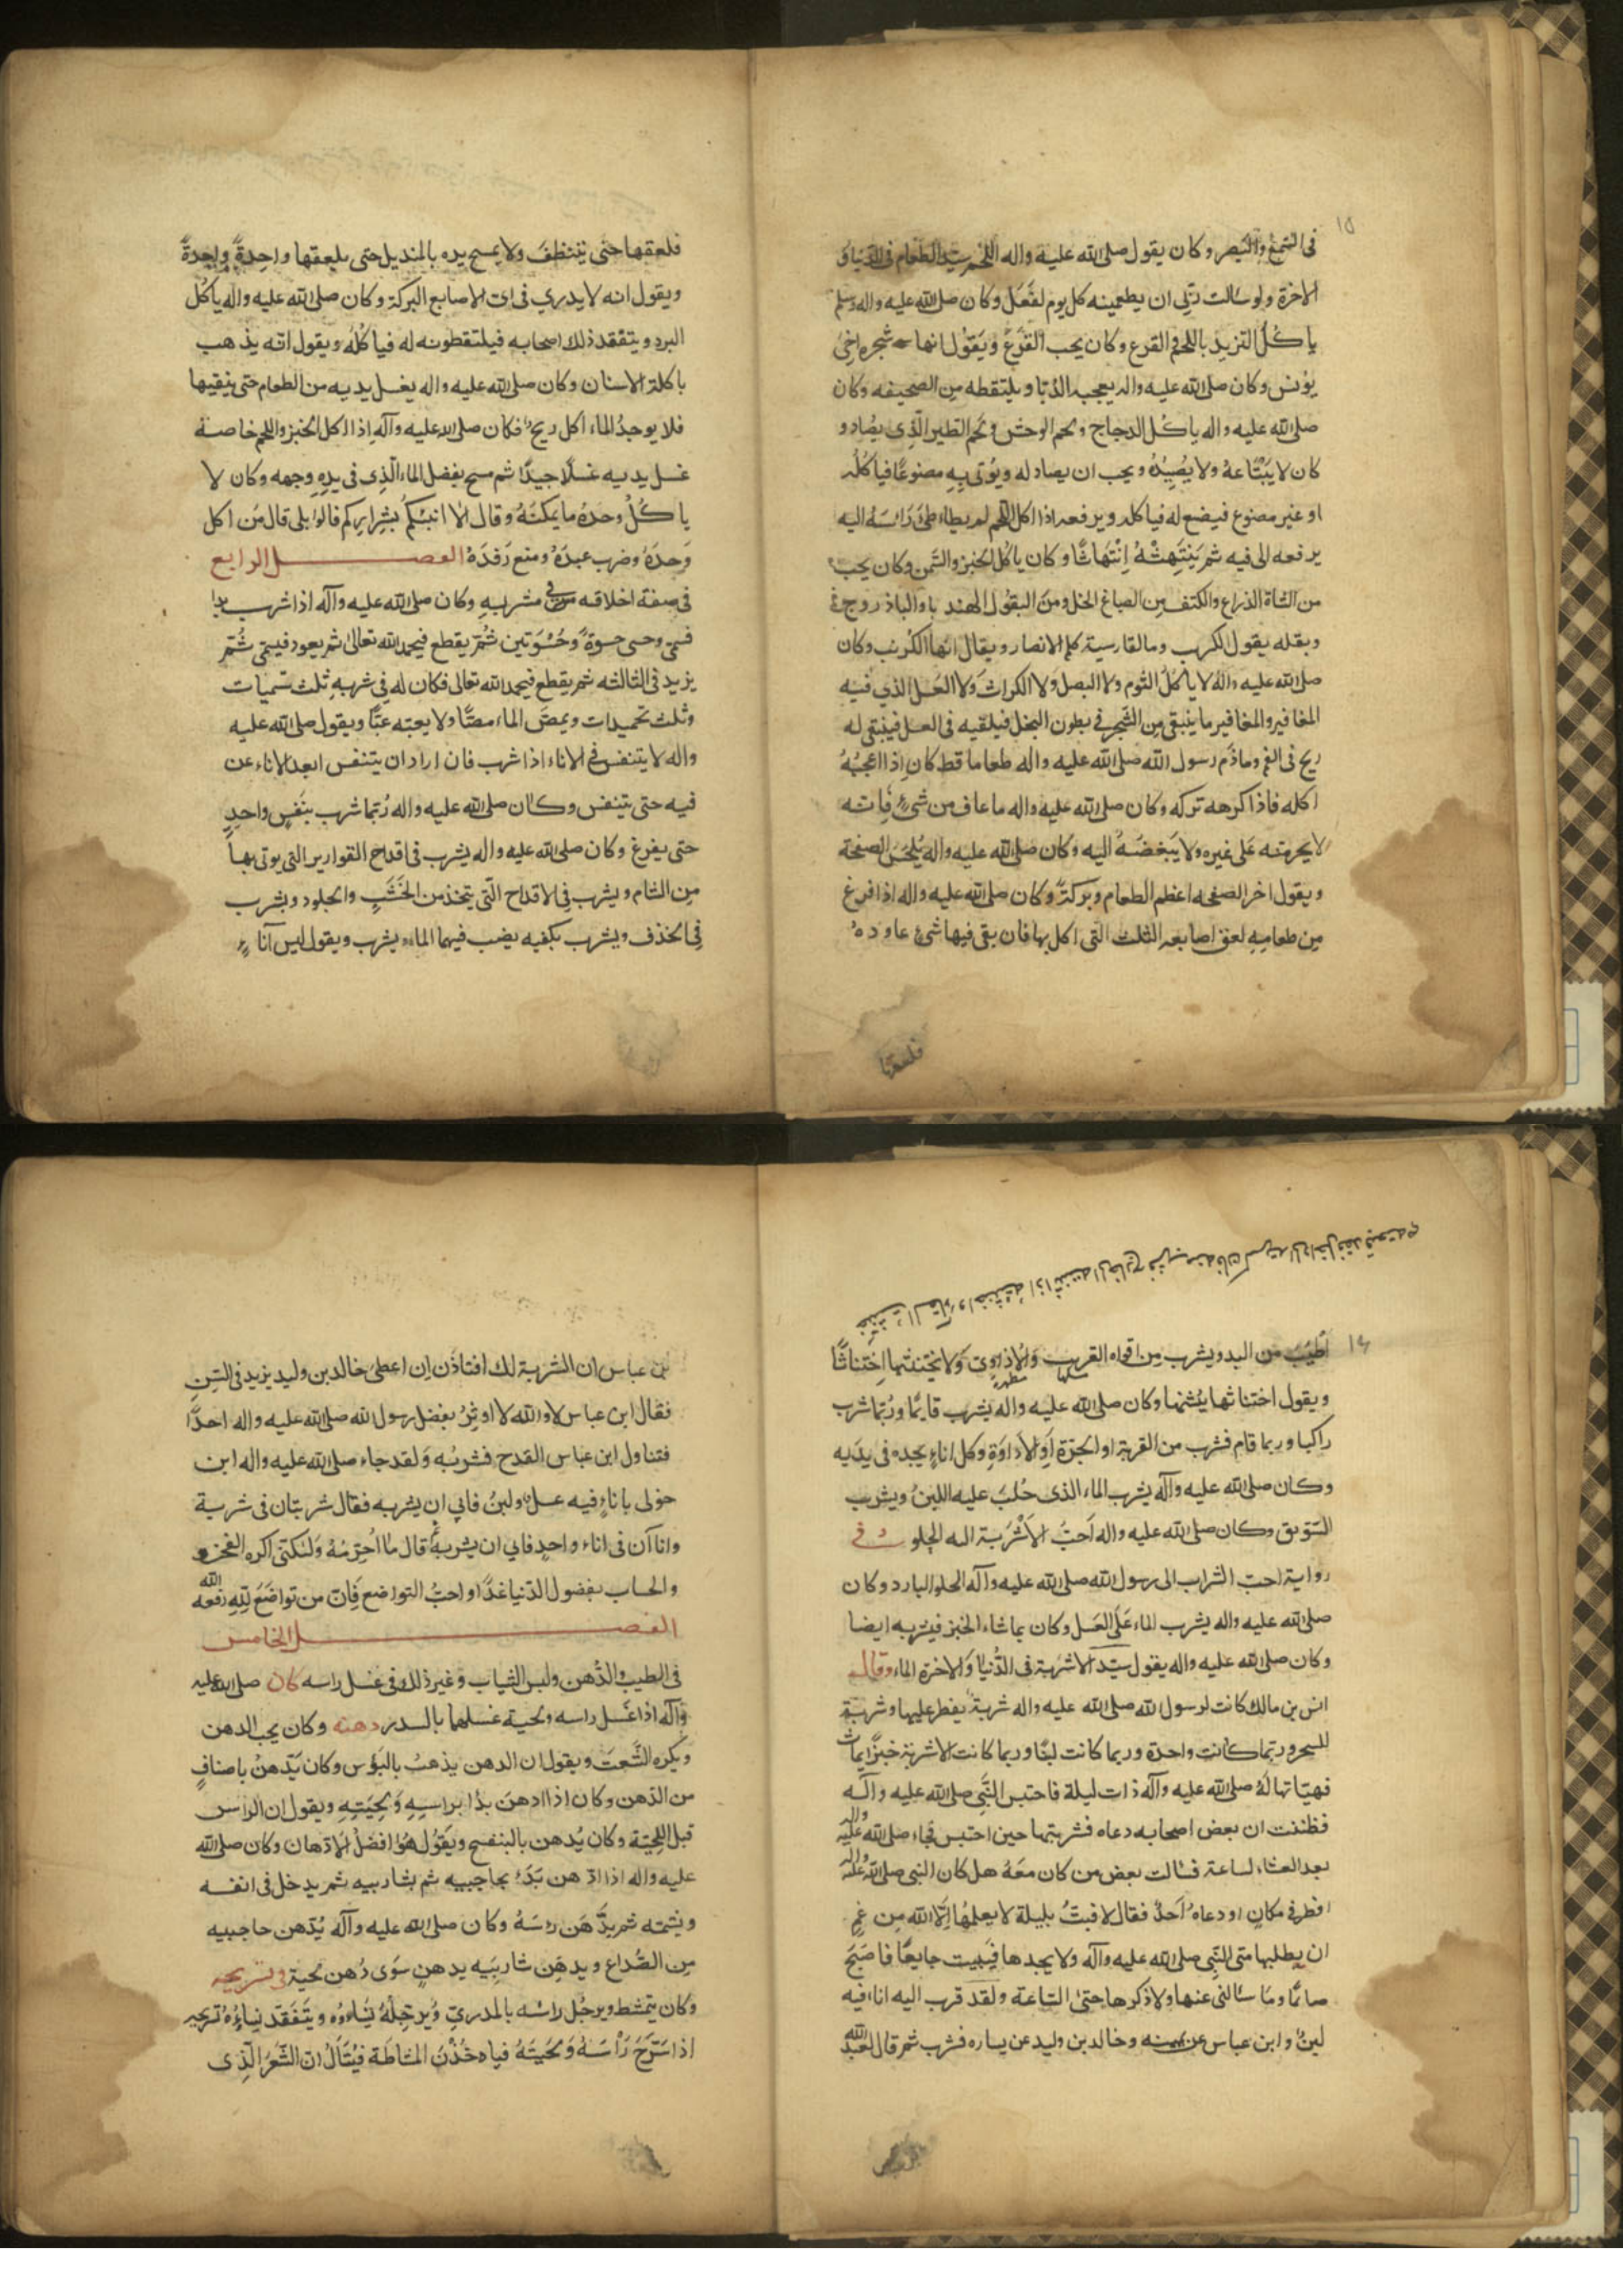 ١٥
فى السمع والبصر وكان يقول صلى الله عليه واله اللحم سيد الطعام فى الدنيا و
الاخرة ولو سالت ربى ان يطعمينه كل يوم لفعل وكان صلى الله عليه واله وسلم
ياكل الثريد باللحم والقرع وكان يحب القرع ويقول انها شجره اخى
يونس وكان صلى الله عليه واله يعجبه الدبا ويلتقطه من الصحيفه وكان
صلى الله عليه واله ياكل الدجاج ولحم الوحش ولحم الطير الذى يصاد و
كان لا يبتاعه ولا يصيده ويحب ان يصاد له ويوتى به مصنوعا فياكله
او غير مصنوع فيضع له فياكله ويرفعه اذا اكل اللحم لم يطاطئ راسه اليه
يرفعه الى فيه ثم ينتهشه انتهاشا وكان ياكل الخبز والسمن وكان يحب
من الشاة الذراع والكتف من الصباغ الخل ومن البقول الهندبا والباذروج
وبقله يقول الكرب وما لقارسية كلم الانصار ويقال انها الكرنب وكان
صلى الله عليه واله لا ياكل الثوم ولا البصل ولا الكراث ولا العسل الذي فيه
المغافير والمغافير ما يبقى من الشجر فى بطون النحل فيلقيه فى العسل فيبقى له
ريح فى الفم وما ذم رسول الله صلى الله عليه واله طعاما قط كان اذا اعجبه
اكله فاذا كرهه تركه وكان صلى الله عليه واله ما عاف من شئ فانه
لا يحرمه على غيره ولا يبغضه اليه وكان صلى الله عليه واله يلحس الصفحة
ويقول اخر الصفحه اعظم الطعام وبركة وكان صلى الله عليه واله اذا فرغ
من طعامه لعق اصابعه الثلث التى اكل بها فان بقى فيها شئ عاوده
فلعقها
فلعقها حتى يتنظف ولا يمسح يده بالمنديل حتى يلعقها واحدة واحدة
ويقول انه لا يدري فى اى الاصابع البركة وكان صلى الله عليه واله ياكل
البرد ويتفقد ذلك اصحابه فيلتقطونه له فياكله ويقول انه يذهب
باكلة الاسنان وكان صلى الله عليه واله يغسل يديه من الطعام حتى ينقيها
فلا يوجد لما اكل ريح فكان صلى الله عليه وآله اذا اكل الخبز واللحم خاصة
غسل يديه غسلا جيدا ثم مسح بفضل الماء الذى فى يده وجهه وكان لا
ياكل وحده ما يمكنه وقال الا انبئكم بشراركم قالوا بلى قال من اكل
وحده وضرب عبده ومنع رفده الفصل الرابع
فى صفة اخلاقه فى مشربه وكان صلى الله عليه وآله اذا شرب بدا
فسمى وحسى حسوة وحسوتين ثم يقطع فيحمد الله تعالى ثم يعود فيسمى ثم
يزيد فى الثالثه ثم يقطع فيحمد الله تعالى فكان له فى شربه ثلث تسميات
وثلث تحميدات ويمص الماء مصا ولا يعبه عبا ويقول صلى الله عليه
واله لا يتنفس فى الاناء اذا شرب فان اراد ان يتنفس ابعد الاناء عن
فيه حتى يتنفس وكان صلى الله عليه واله ربما شرب بنفس واحد
حتى يفرغ وكان صلى الله عليه واله يشرب فى اقداح القوارير التى يوتى بها
من الشام ويشرب فى الاقداح التى يتخذ من الخشب والجلود ويشرب
فى الخذف ويشرب بكفيه يصب فيهما الماء ويشرب ويقول ليس آناء
١٦
اطيب من اليد ويشرب من افواه القرب والاداوى ولا يختنثها اختناثا
ويقول اختناثها ينتنها وكان صلى الله عليه واله يشرب قايما وربما شرب
راكبا وربما قام فشرب من القربة او الجرة او الاداوة وكل اناء يجده فى يديه
وكان صلى الله عليه وآله يشرب الماء الذى حلب عليه اللبن ويشرب
السويق وكان صلى الله عليه واله احب الاشربة اليه الحلو وفى
رواية احب الشراب الى رسول الله صلى الله عليه وآله الحلو البارد وكان
صلى الله عليه واله يشرب الماء على العسل وكان يماث له الخبز فيشربه ايضا
وكان صلى الله عليه واله يقول سيد الاشربة فى الدنيا والاخرة الماء وقال
انس بن مالك كانت لرسول الله صلى الله عليه واله شربة يفطر عليها وشربة
للسحر وربما كانت واحدة وربما كانت لبنا وربما كانت الاشربة خبزا يماث
فهياتها له صلى الله عليه وآله ذات ليلة فاحتبس النبى صلى الله عليه وآله
فظننت ان بعض اصحابه دعاه فشربتها حين احتبس فجاء صلى الله عليه واله
بعد العشاء لساعة فسالت بعض من كان معه هل كان النبى صلى الله عليه واله
افطر فى مكان او دعاه احد فقال لا فبت بليلة لا يعلمها الا الله من غم
ان يطلبها منى النبى صلى الله عليه وآله ولا يجدها فيبيت جايعا فاصبح
صائما وما سالنى عنها ولا ذكرها حتى الساعة ولقد قرب اليه اناء فيه
لبن وابن عباس عن يمينه وخالد بن وليد عن يساره فشرب ثم قال لعبد الله
بن عباس ان الشربة لك افتاذن ان اعطى خالد بن وليد يريد فى السن
فقال ابن عباس لا والله لا اوثر بفضل رسول الله صلى الله عليه واله احدا
فتناول ابن عباس القدح فشربه ولقد جاء صلى الله عليه واله ابن
خولى باناء فيه عسل ولبن فابى ان يشربه فقال شربتان فى شربة
واناآن فى اناء واحد فابى ان يشربه قال ما احرمه ولكنى اكره الفخر
والحساب بفضول الدنيا غدا واحب التواضع فان من تواضع لله رفعه الله
الفصل الخامس
فى الطيب والدهن ولبس الثياب وغير ذلك فى غسل راسه كان صلى الله عليه
وآله اذا غسل راسه ولحيته غسلهما بالسدر دهنه وكان يحب الدهن
ويكره الشعث ويقول ان الدهن يذهب بالبؤس وكان يدهن باصناف
من الدهن وكان اذا ادهن بدا براسه ولحيته ويقول ان الراس
قبل اللحية وكان يدهن بالبنفسج ويقول هو افضل الادهان وكان صلى الله
عليه واله اذا ادهن بدء بحاجبيه ثم بشاربيه ثم يدخل فى انفه
ويشمه ثم يدهن راسه وكان صلى الله عليه وآله يدهن حاجبيه
من الصداع ويدهن شاربيه بدهن سوى دهن لحيته فى تسريحه
وكان يتمشط ويرجل راسه بالمدرى ويرجله نساؤه ويتفقد نساؤه تسريحه
اذا سرح راسه ولحيته فياخذن المشاطة فيقال ان الشعر الذى